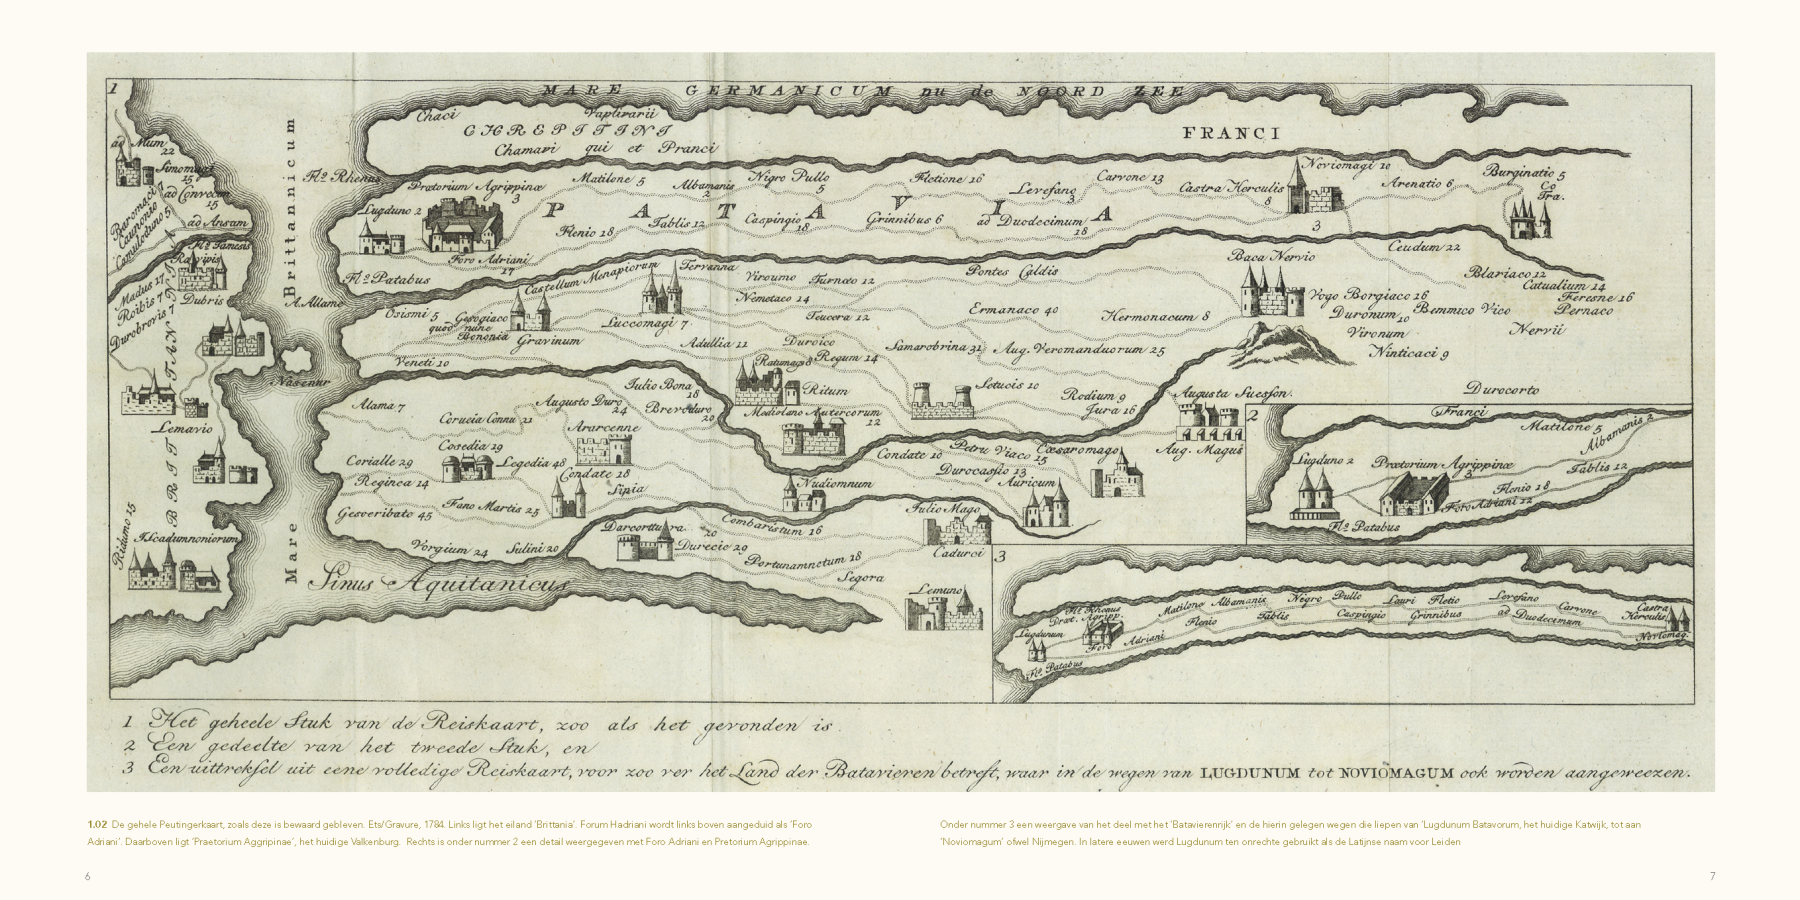 1
MARE GERMANICUM nu de NOORD ZEE
Chaci Vaplivarii
CHREPSTINI
Chamavi qui et Pranci
FRANCI
ad Mum
22
Sinomagi
15
ad Convecin
15
ad Ansam
Baromaci
Caunonio
Camuloduno 5
Fl.s Tamesis
Ratvipis
Madus 17
Roibis 7
Dubris
Durobrovis 7
BRITTANI
Lemavio
Ridumo 15
Iscadumnoniorum
Mare Brittannicum
Fl.s Rhenus
Prætorium Agrippinæ
3
Matilone 5
Albamanis
2
Nigro Pullo
5
Fletione 16
Levefano
3
Carvone 13
Castra Herculis
8
Noviomagi 10
3
Arenatio 6
Burginatio 5
Co
Tra.
Lugduno 2
PATAVIA
Flenio 18
Tablis 12
Caspingio
18
Grinnibus 6
ad Duodecimum
18
Foro Adriani
17
Ceudum 22
Fl.s Patabus
Castellum Menapiorum
Tervanna
Viroumo
Turnaco 12
Pontes Caldis
Baca Nervio
Blariaco 12
Catualium 14
Feresne 16
Pernaco
A. Allame
Osismi 5
Gesogiaco
quod nunc
Bononia
Gravinum
Luccomagi 7
Nemetaco 14
Teucera 12
Ermanaco 40
Hermonacum 8
Vogo Borgiaco 16
Duronum 10
Bemmico Vico
Vironum
Nervii
Ninticaci 9
Adullia 11
Duroico
Regum 14
Samarobrina 31
Aug. Veromanduorum 25
Veneti 10
Nasenur
Ratumagi 8
Ritum
Setucis 10
Rodium 9
Jura 16
Augusta Suesson.
Durocorto
Iulio Bona
18
Augusto Duro
24
Brevoduro
20
Mediolano Autercorum
12
Alama 7
CoruCia Connu 21
Ararcenne
Condate 10
Petru Viaco 15
Cæsaromago
Aug. Magus
Cosedia 29
Legedia 48
Condate 18
Durocassio 13
Auricum
Corialle 29
Reginca 14
Fano Martis 25
Sipia
Nudionnum
Gesocribate 45
Iulio Mago
Darcorttura
20
Combaristum 16
Vorgium 24
Sulini 20
Durecie 29
Cadurci
Portunamnetum 18
Segora
Lemuno
Sinus Aquitanicus
2
Franci
Matilone 5
Albamanis 2
Lugduno 2
Prætorium Agrippinæ
3
Tablis 12
Flenio 18
Foro Adriani 12
Fl.s Patabus
3
Fl.s Rhenus
Præt. Agripp.
Matilone Albamanis Nigro Pullo Lauri Fletio Levefano
Carvone
Castra
Herculis
Lugdunum
Foro Adriani
Flenio
Tablis
Caspingio
Grinnibus
ad Duodecimum
Noviomag.
Fl.s Patabus
1 Het geheele Stuk van de Reiskaart, zoo als het gevonden is.
2 Een gedeelte van het tweede Stuk, en
3 Een uittreksel uit eene volledige Reiskaart, voor zoo ver het Land der Batavieren betreft, waar in de wegen van LUGDUNUM tot NOVIOMAGUM ook worden aangeweezen.
1.02 De gehele Peutingerkaart, zoals deze is bewaard gebleven. Ets/Gravure, 1784. Links ligt het eiland 'Brittania'. Forum Hadriani wordt links boven aangeduid als 'Foro
Adriani'. Daarboven ligt 'Praetorium Aggripinae', het huidige Valkenburg. Rechts is onder nummer 2 een detail weergegeven met Foro Adriani en Pretorium Agrippinae.
Onder nummer 3 een weergave van het deel met het 'Batavierenrijk' en de hierin gelegen wegen die liepen van 'Lugdunum Batavorum, het huidige Katwijk, tot aan
'Noviomagum' ofwel Nijmegen. In latere eeuwen werd Lugdunum ten onrechte gebruikt als de Latijnse naam voor Leiden
6
7